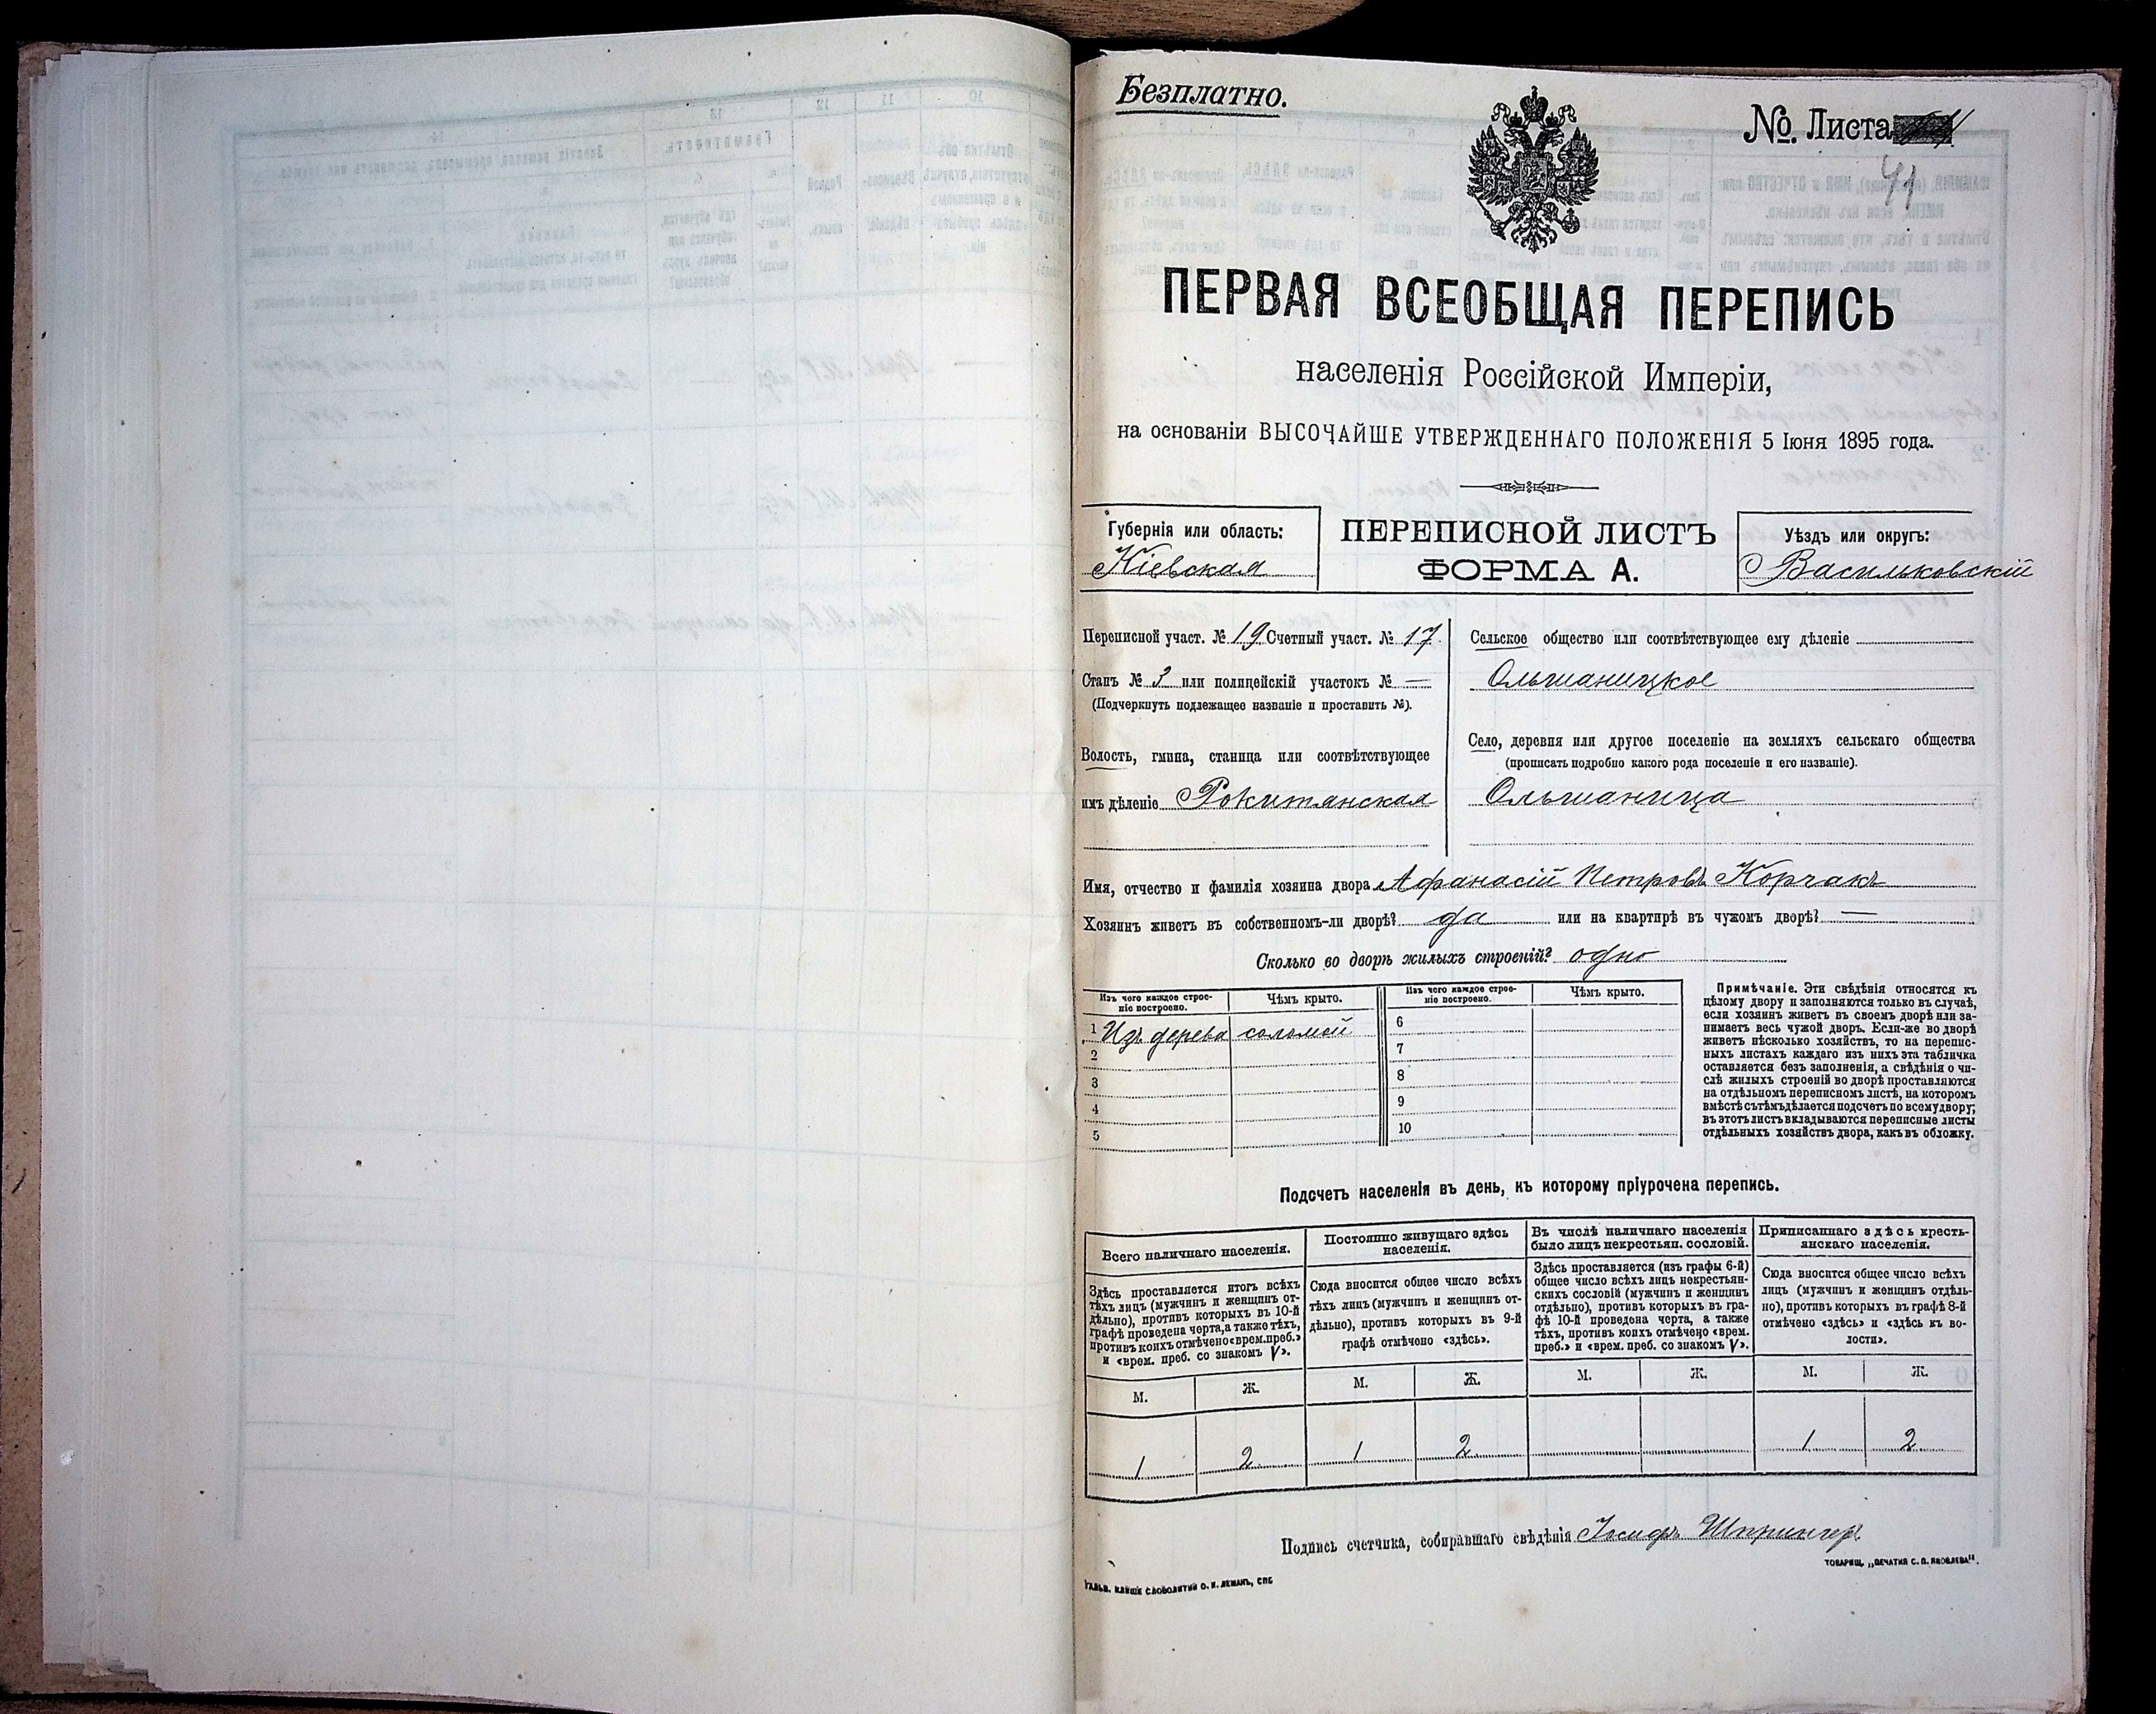 Безплатно.
№. Листа
41
ПЕРВАЯ ВСЕОБЩАЯ ПЕРЕПИСЬ
населенія Россійской Имперіи,
на основаніи ВЫСОЧАЙШЕ УТВЕРЖДЕННАГО ПОЛОЖЕНІЯ 5 Іюня 1895 года.
Губернія или область:
Кіевская
ПЕРЕПИСНОЙ ЛИСТЪ
ФОРМА А.
Уѣздъ или округъ:
Васильковскій
Переписной участ. № 19 Счетный участ. № 17
Станъ № 3 или полицейскій участокъ № —
(Подчеркнуть подлежащее названіе и проставить №).
Волость, гмина, станица или соотвѣтствующее
имъ дѣленіе Рокитанская
Сельское общество или соотвѣтствующее ему дѣленіе
Ольшаницкое
Село, деревня или другое поселеніе на земляхъ сельскаго общества
(прописать подробно какого рода поселеніе и его названіе).
Ольшаница
Имя, отчество и фамилія хозяина двора Афанасій Петровъ Корчакъ
Хозяинъ живетъ въ собственномъ-ли дворѣ? да или на квартирѣ въ чужомъ дворѣ? —
Сколько во дворѣ жилыхъ строеній? одно
Изъ чего каждое строе-
ніе построено.
Чѣмъ крыто.
1 Изъ дерева соломой
2
3
4
5
Изъ чего каждое строе-
ніе построено.
Чѣмъ крыто.
6
7
8
9
10
Примѣчаніе. Эти свѣдѣнія относятся къ
цѣлому двору и заполняются только въ случаѣ,
если хозяинъ живетъ въ своемъ дворѣ или за-
нимаетъ весь чужой дворъ. Если-же во дворѣ
живетъ нѣсколько хозяйствъ, то на перепис-
ныхъ листахъ каждаго изъ нихъ эта табличка
оставляется безъ заполненія, а свѣдѣнія о чи-
слѣ жилыхъ строеній во дворѣ проставляются
на отдѣльномъ переписномъ листѣ, на которомъ
вмѣстѣ съ тѣмъ дѣлается подсчетъ по всему двору;
въ этотъ листъ вкладываются переписные листы
отдѣльныхъ хозяйствъ двора, какъ въ обложку.
Подсчетъ населенія въ день, къ которому пріурочена перепись.
Всего наличнаго населенія.
Здѣсь проставляется итогъ всѣхъ
тѣхъ лицъ (мужчинъ и женщинъ от-
дѣльно), противъ которыхъ въ 10-й
графѣ проведена черта, а также тѣхъ,
противъ коихъ отмѣчено «врем. преб.»
и «врем. преб. со знакомъ V».
М. Ж.
1 2
Постоянно живущаго здѣсь
населенія.
Сюда вносится общее число всѣхъ
тѣхъ лицъ (мужчинъ и женщинъ от-
дѣльно), противъ которыхъ въ 9-й
графѣ отмѣчено «здѣсь».
М. Ж.
1 2
Въ числѣ наличнаго населенія
было лицъ некрестьян. сословій.
Здѣсь проставляется (изъ графы 6-й)
общее число всѣхъ лицъ некрестьян-
скихъ сословій (мужчинъ и женщинъ
отдѣльно), противъ которыхъ въ гра-
фѣ 10-й проведена черта, а также
тѣхъ, противъ коихъ отмѣчено «врем.
преб.» и «врем. преб. со знакомъ V».
М. Ж.
Приписаннаго здѣсь кресть-
янскаго населенія.
Сюда вносится общее число всѣхъ
лицъ (мужчинъ и женщинъ отдѣль-
но), противъ которыхъ въ графѣ 8-й
отмѣчено «здѣсь» и «здѣсь къ во-
лости».
М. Ж.
1 2
Подпись счетчика, собиравшаго свѣдѣнія Іосифъ Шпрингеръ
ТОВАРИЩ. „ПЕЧАТНЯ С. П. ЯКОВЛЕВА".
ГАЛЬВ. КЛИШЕ СЛОВОЛИТНИ О. И. ЛЕМАНЪ, СПБ